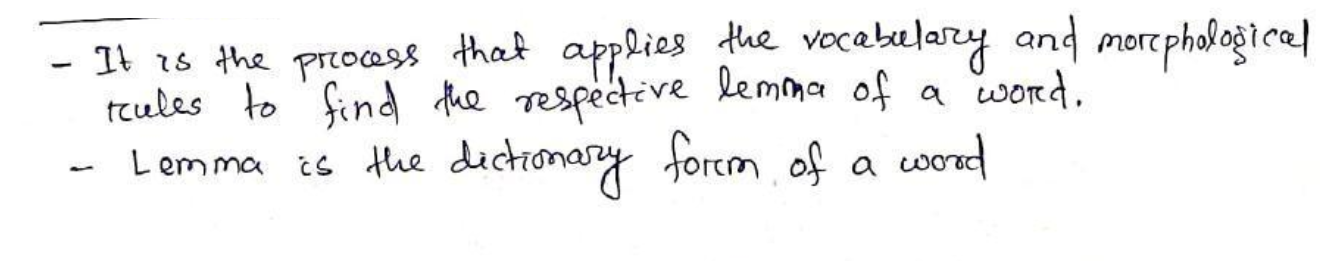 - It is the process that applies the vocabulary and morphological
rules to find the respective lemma of a word.
- Lemma is the dictionary form of a word